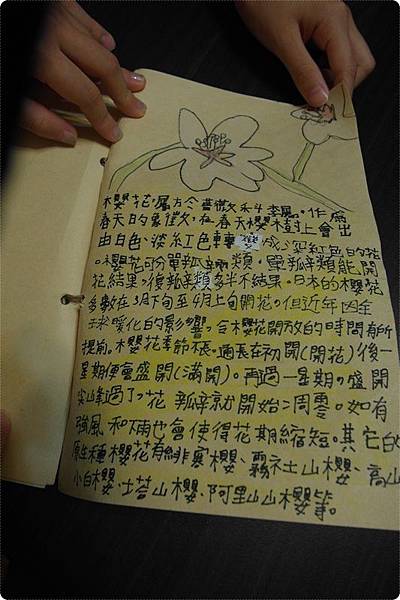 櫻花,屬於薔薇科李屬。作為
春天的象徵,在春天櫻樹上會出
由白色、淡紅色轉變成深紅色的花
。櫻花可分單瓣兩類,單瓣類能開
花結果,復瓣類多半不結果。日本的櫻花
多數在3月旬至4月上旬開花。但近年因全
球暖化的影響,令櫻花開放的時間有所
提前。櫻花季節不長,通長在初開(開花)後一
星期便會盛開(滿開)。再過一星期。盛開
尖峰過了。花瓣就開始凋零。如有
強風和雨也會使得花期縮短。其它的
原生種櫻花有緋寒櫻、霧社山櫻、高山
小白櫻、塔山櫻、阿里山山櫻等。